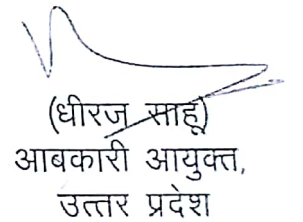 (धीरज साहू)
आबकारी आयुक्त,
उत्तर प्रदेश